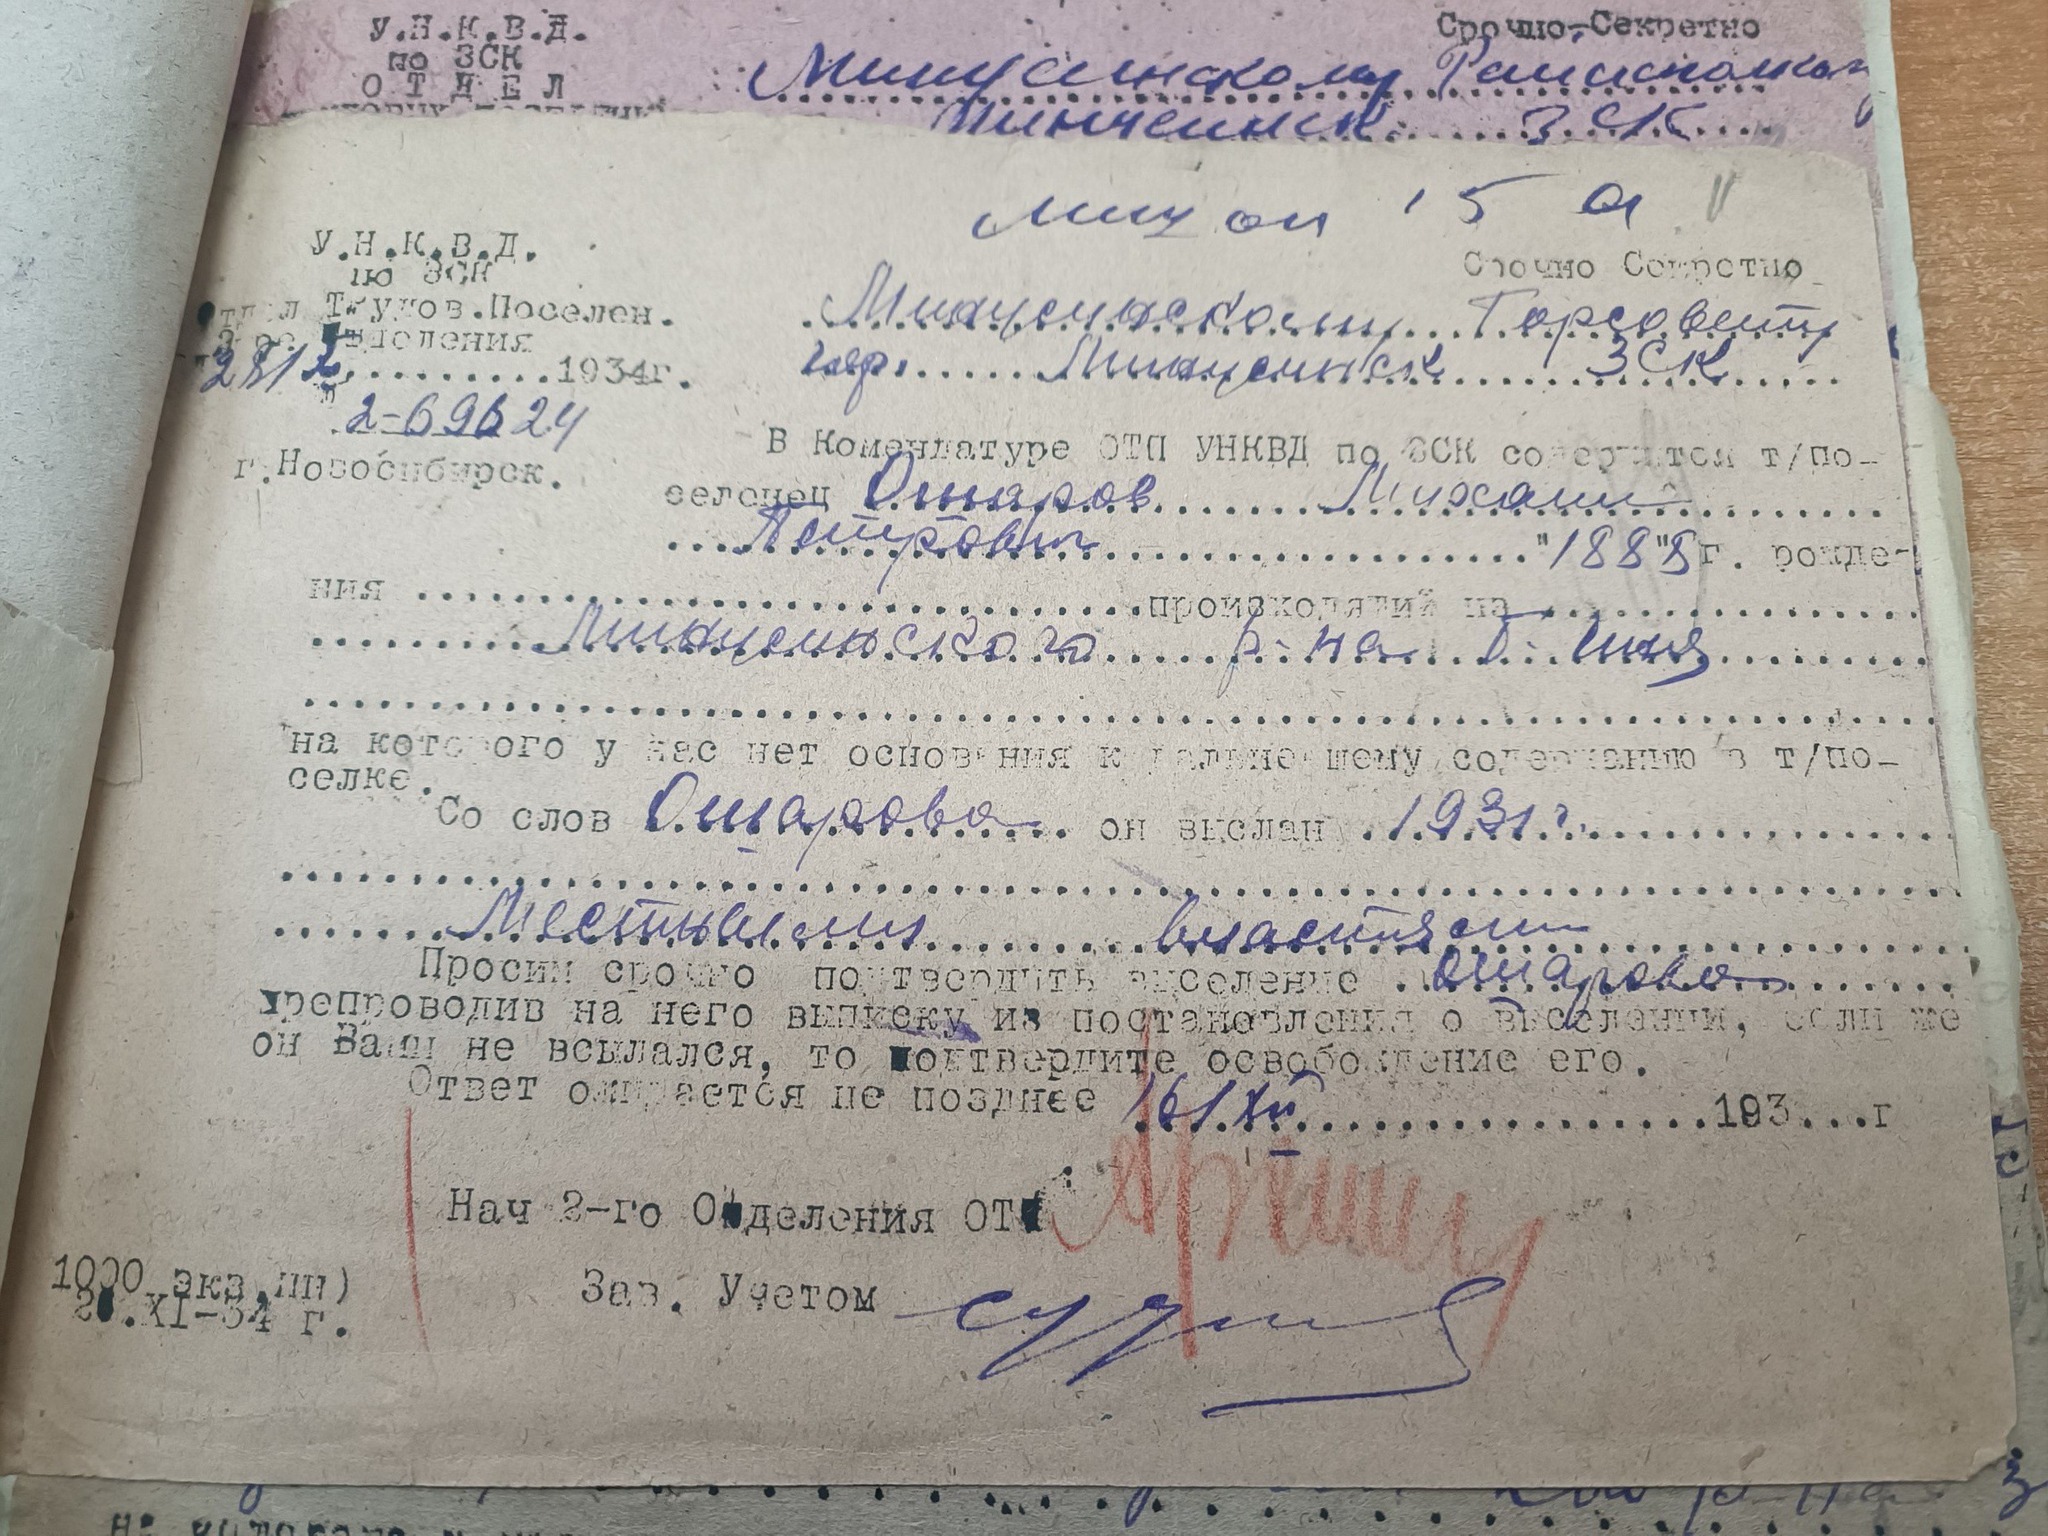 У.Н.К.В.Д.
по ЗСК
ОТДЕЛ
Срочно-Секретно
Минусинскому
Минусинск ЗСК
15
У.Н.К.В.Д.
по ЗСК
тдел Трудов.Поселен.
2-ре отделения
1934г.
2-69624
г.Новосибирск.
Срочно Секретно
Минусинскому Горсовету
гор. Минусинск ЗСК
В Комендатуре ОТП УНКВД по ЗСК содержится т/по-
селенец Ошаров Михаил
Петрович "1888"г. рожде-
ния происходятий из
Минусинского р-на
на которого у нас нет основания к дальнейшему содержанию в т/по-
селке.
Со слов Ошарова он выслан 1931 г.
Местными властями
Просим срочно подтвердить выселение Ошарова
препроводив на него выписку из постановления о выселении, если же
он Вами не всылался, то подтвердите освобождение его.
Ответ ожидается не позднее 16/XII 193...г
Нач 2-го Отделения ОТП
Зав. Учетом
1000 экз.
XI-34 г.